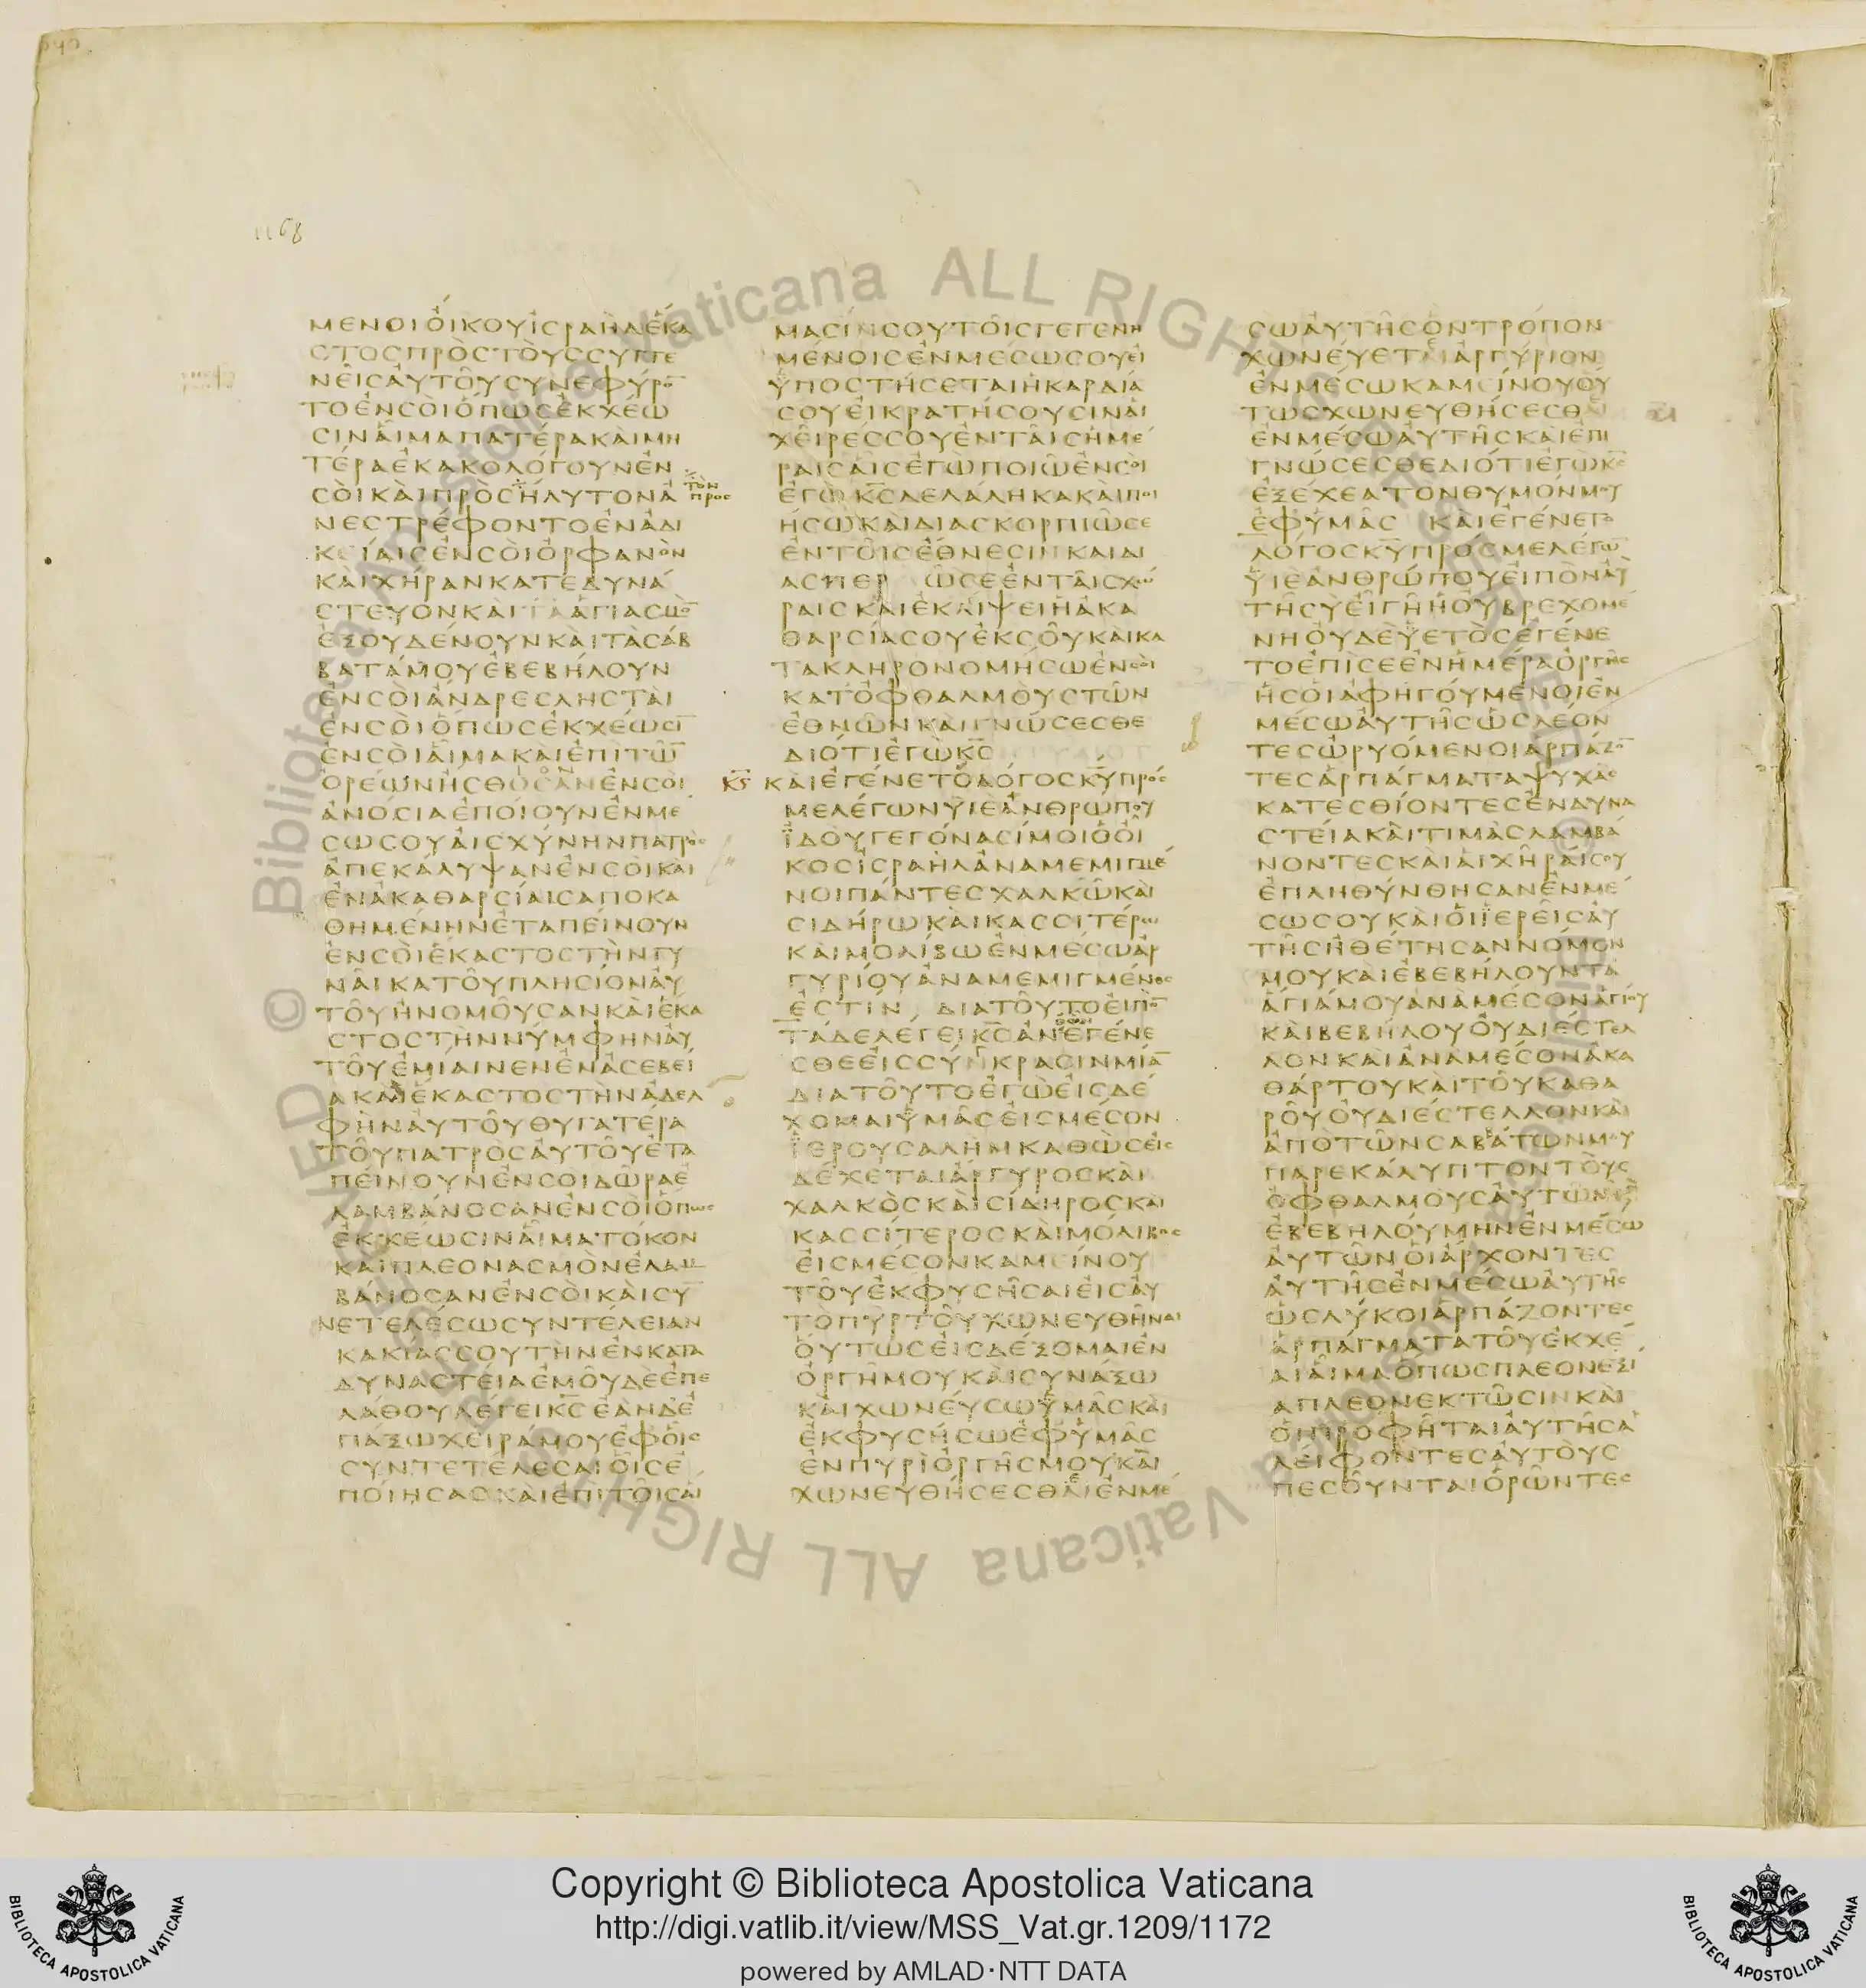 1168
ΜΕΝΟΙΟΙΚΟΥΙΣΡΑΗΛΕΚΑ
ΣΤΟΣΠΡΟΣΤΟΥΣΣΥΓΓΕ
ΝΕΙΣΑΥΤΟΥΣΥΝΕΦΥΡΟ̅
ΤΟΕΝΣΟΙΟΠΩΣΕΚΧΕΩ
ΣΙΝΑΙΜΑΠΑΤΕΡΑΚΑΙΜΗ
ΤΕΡΑΕΚΑΚΟΛΟΓΟΥΝΕΝ
ΣΟΙΚΑΙΠΡΟΣΗΛΥΤΟΝΑ
ΝΕΣΤΡΕΦΟΝΤΟΕΝΑΔΙ
ΚΕΙΑΙΣΕΝΣΟΙΟΡΦΑΝΟΝ
ΚΑΙΧΗΡΑΝΚΑΤΕΔΥΝΑ
ΣΤΕΥΟΝΚΑΙΤΑΑΓΙΑΣΜΟ̅
ΕΞΟΥΔΕΝΟΥΝΚΑΙΤΑΣΑΒ
ΒΑΤΑΜΟΥΕΒΕΒΗΛΟΥΝ
ΕΝΣΟΙΑΝΔΡΕΣΛΗΣΤΑΙ
ΕΝΣΟΙΟΠΩΣΕΚΧΕΩΣΙ̅
ΕΝΣΟΙΑΙΜΑΚΑΙΕΠΙΤΩ̅
ΟΡΕΩΝΗΣΘΟΣΑΝΕΝΣΟΙ
ΑΝΟΣΙΑΕΠΟΙΟΥΝΕΝΜΕ
ΣΩΣΟΥΑΙΣΧΥΝΗΝΠΑΤΡΟΣ
ΑΠΕΚΑΛΥΨΑΝΕΝΣΟΙΚΑΙ
ΕΝΑΚΑΘΑΡΣΙΑΙΣΑΠΟΚΑ
ΘΗΜΕΝΗΝΕΤΑΠΕΙΝΟΥΝ
ΕΝΣΟΙΕΚΑΣΤΟΣΤΗΝΓΥ
ΝΑΙΚΑΤΟΥΠΛΗΣΙΟΝΑΥ
ΤΟΥΗΝΟΜΟΥΣΑΝΚΑΙΕΚΑ
ΣΤΟΣΤΗΝΝΥΜΦΗΝΑΥ
ΤΟΥΕΜΙΑΙΝΕΝΕΝΑΣΕΒΕΙ
ΑΚΑΙΕΚΑΣΤΟΣΤΗΝΑΔΕΛ
ΦΗΝΑΥΤΟΥΘΥΓΑΤΕΡΑ
ΤΟΥΠΑΤΡΟΣΑΥΤΟΥΕΤΑ
ΠΕΙΝΟΥΝΕΝΣΟΙΔΩΡΑΕ
ΛΑΜΒΑΝΟΣΑΝΕΝΣΟΙΟΠΩΣ
ΕΚΧΕΩΣΙΝΑΙΜΑΤΟΚΟΝ
ΚΑΙΠΛΕΟΝΑΣΜΟΝΕΛΑΜ
ΒΑΝΟΣΑΝΕΝΣΟΙΚΑΙΣΥ̅
ΝΕΤΕΛΕΣΩΣΥΝΤΕΛΕΙΑΝ
ΚΑΚΙΑΣΣΟΥΤΗΝΕΝΚΑΤΑ
ΔΥΝΑΣΤΕΙΑΕΜΟΥΔΕΕΠΕ
ΛΑΘΟΥΛΕΓΕΙΚ̅Σ̅ΕΑΝΔΕ
ΠΑΞΩΧΕΙΡΑΜΟΥΕΦΟΙΣ
ΣΥΝΤΕΤΕΛΕΣΑΙΟΙΣΕ
ΠΟΙΗΣΑΣΚΑΙΕΠΙΤΟΙΣΑΙ
ΤΟΝ
ΠΡΟΣ
ΜΑΣΙΝΣΟΥΤΟΙΣΓΕΓΕΝΗ
ΜΕΝΟΙΣΕΝΜΕΣΩΣΟΥΕΙ
ΥΠΟΣΤΗΣΕΤΑΙΗΚΑΡΔΙΑ
ΣΟΥΕΙΚΡΑΤΗΣΟΥΣΙΝΑΙ
ΧΕΙΡΕΣΣΟΥΕΝΤΑΙΣΗΜΕ
ΡΑΙΣΑΙΣΕΓΩΠΟΙΩΕΝΣΟΙ
ΕΓΩΚ̅Σ̅ΛΕΛΑΛΗΚΑΚΑΙΠΟΙ
ΗΣΩΚΑΙΔΙΑΣΚΟΡΠΙΩΣΕ
ΕΝΤΟΙΣΕΘΝΕΣΙΝΚΑΙΔΙ
ΑΣΠΕΡΩΣΕΕΝΤΑΙΣΧΩ
ΡΑΙΣΚΑΙΕΚΛΙΨΕΙΗΑΚΑ
ΘΑΡΣΙΑΣΟΥΕΚΣΟΥΚΑΙΚΑ
ΤΑΚΛΗΡΟΝΟΜΗΣΩΕΝΣΟΙ
ΚΑΤΟΦΘΑΛΜΟΥΣΤΩΝ
ΕΘΝΩΝΚΑΙΓΝΩΣΕΣΘΕ
ΔΙΟΤΙΕΓΩΚ̅Σ̅
ΚϚ ΚΑΙΕΓΕΝΕΤΟΛΟΓΟΣΚ̅Υ̅ΠΡΟΣ
ΜΕΛΕΓΩΝΥΙΕΑΝΘΡΩΠΟΥ
ΙΔΟΥΓΕΓΟΝΑΣΙΜΟΙΟΟΙ
ΚΟΣΙΣΡΑΗΛΑΝΑΜΕΜΙΓΜΕ
ΝΟΙΠΑΝΤΕΣΧΑΛΚΩΚΑΙ
ΣΙΔΗΡΩΚΑΙΚΑΣΣΙΤΕΡΩ
ΚΑΙΜΟΛΙΒΩΕΝΜΕΣΩΑΡ
ΓΥΡΙΟΥΑΝΑΜΕΜΙΓΜΕΝΟΣ
ΕΣΤΙΝ ΔΙΑΤΟΥΤΟΕΙΠΟ̅
ΤΑΔΕΛΕΓΕΙΚ̅Σ̅ΑΝΕΓΕΝΕ
ΣΘΕΕΙΣΣΥΓΚΡΑΣΙΝΜΙΑ̅
ΔΙΑΤΟΥΤΟΕΓΩΕΙΣΔΕ
ΧΟΜΑΙΥΜΑΣΕΙΣΜΕΣΟΝ
ΙΕΡΟΥΣΑΛΗΜΚΑΘΩΣΕΙΣ
ΔΕΧΕΤΑΙΑΡΓΥΡΟΣΚΑΙ
ΧΑΛΚΟΣΚΑΙΣΙΔΗΡΟΣΚΑΙ
ΚΑΣΣΙΤΕΡΟΣΚΑΙΜΟΛΙΒΟΣ
ΕΙΣΜΕΣΟΝΚΑΜΕΙΝΟΥ
ΤΟΥΕΚΦΥΣΗΣΑΙΕΙΣΑΥ
ΤΟΠΥΡΤΟΥΧΩΝΕΥΘΗΝΑΙ
ΟΥΤΩΣΕΙΣΔΕΞΟΜΑΙΕΝ
ΟΡΓΗΜΟΥΚΑΙΣΥΝΑΞΩ
ΚΑΙΧΩΝΕΥΣΩΥΜΑΣΚΑΙ
ΕΚΦΥΣΗΣΩΕΦΥΜΑΣ
ΕΝΠΥΡΙΟΡΓΗΣΜΟΥΚΑΙ
ΧΩΝΕΥΘΗΣΕΣΘΑΙΕΝΜΕ
ΣΩΑΥΤΗΣΟΝΤΡΟΠΟΝ
ΧΩΝΕΥΕΤΑΙΑΡΓΥΡΙΟΝ
ΕΝΜΕΣΩΚΑΜΕΙΝΟΥΟΥ
ΤΩΣΧΩΝΕΥΘΗΣΕΣΘΑΙ
ΕΝΜΕΣΩΑΥΤΗΣΚΑΙΕΠΙ
ΓΝΩΣΕΣΘΕΔΙΟΤΙΕΓΩΚ̅Σ̅
ΕΞΕΧΕΑΤΟΝΘΥΜΟΝΜΟΥ
ΕΦΥΜΑΣ ΚΑΙΕΓΕΝΕΤΟ
ΛΟΓΟΣΚ̅Υ̅ΠΡΟΣΜΕΛΕΓΩ̅
ΥΙΕΑΝΘΡΩΠΟΥΕΙΠΟΝΑΥ
ΤΗΣΥΕΙΓΗΗΟΥΒΡΕΧΟΜΕ
ΝΗΟΥΔΕΥΕΤΟΣΕΓΕΝΕ
ΤΟΕΠΙΣΕΕΝΗΜΕΡΑΟΡΓΗΣ
ΗΣΟΙΑΦΗΓΟΥΜΕΝΟΙΕΝ
ΜΕΣΩΑΥΤΗΣΩΣΛΕΟΝ
ΤΕΣΩΡΥΟΜΕΝΟΙΑΡΠΑΖΟ̅
ΤΕΣΑΡΠΑΓΜΑΤΑΨΥΧΑΣ
ΚΑΤΕΣΘΙΟΝΤΕΣΕΝΔΥΝΑ
ΣΤΕΙΑΚΑΙΤΙΜΑΣΛΑΜΒΑ
ΝΟΝΤΕΣΚΑΙΑΙΧΗΡΑΙΣΟΥ
ΕΠΛΗΘΥΝΘΗΣΑΝΕΝΜΕ
ΣΩΣΟΥΚΑΙΟΙΙΕΡΕΙΣΑΥ
ΤΗΣΗΘΕΤΗΣΑΝΝΟΜΟΝ
ΜΟΥΚΑΙΕΒΕΒΗΛΟΥΝΤΑ
ΑΓΙΑΜΟΥΑΝΑΜΕΣΟΝΑΓΙΟΥ
ΚΑΙΒΕΒΗΛΟΥΟΥΔΙΕΣΤΕΛ
ΛΟΝΚΑΙΑΝΑΜΕΣΟΝΑΚΑ
ΘΑΡΤΟΥΚΑΙΤΟΥΚΑΘΑ
ΡΟΥΟΥΔΙΕΣΤΕΛΛΟΝΚΑΙ
ΑΠΟΤΩΝΣΑΒΑΤΩΝΜΟΥ
ΠΑΡΕΚΑΛΥΠΤΟΝΤΟΥΣ
ΟΦΘΑΛΜΟΥΣΑΥΤΩΝ
ΕΒΕΒΗΛΟΥΜΗΝΕΝΜΕΣΩ
ΑΥΤΩΝΟΙΑΡΧΟΝΤΕΣ
ΑΥΤΗΣΕΝΜΕΣΩΑΥΤΗΣ
ΩΣΛΥΚΟΙΑΡΠΑΖΟΝΤΕΣ
ΑΡΠΑΓΜΑΤΑΤΟΥΕΚΧΕ
ΑΙΑΙΜΑΟΠΩΣΠΛΕΟΝΕΞΙ
ΑΠΛΕΟΝΕΚΤΩΣΙΝΚΑΙ
ΟΙΠΡΟΦΗΤΑΙΑΥΤΗΣΑ
ΛΕΙΦΟΝΤΕΣΑΥΤΟΥΣ
ΠΕΣΟΥΝΤΑΙΟΡΩΝΤΕΣ
© Biblioteca Apostolica Vaticana ALL RIGHTS RESERVED
© Biblioteca Apostolica Vaticana ALL RIGHTS RESERVED
Copyright © Biblioteca Apostolica Vaticana
http://digi.vatlib.it/view/MSS_Vat.gr.1209/1172
powered by AMLAD·NTT DATA
BIBLIOTECA APOSTOLICA VATICANA
BIBLIOTECA APOSTOLICA VATICANA